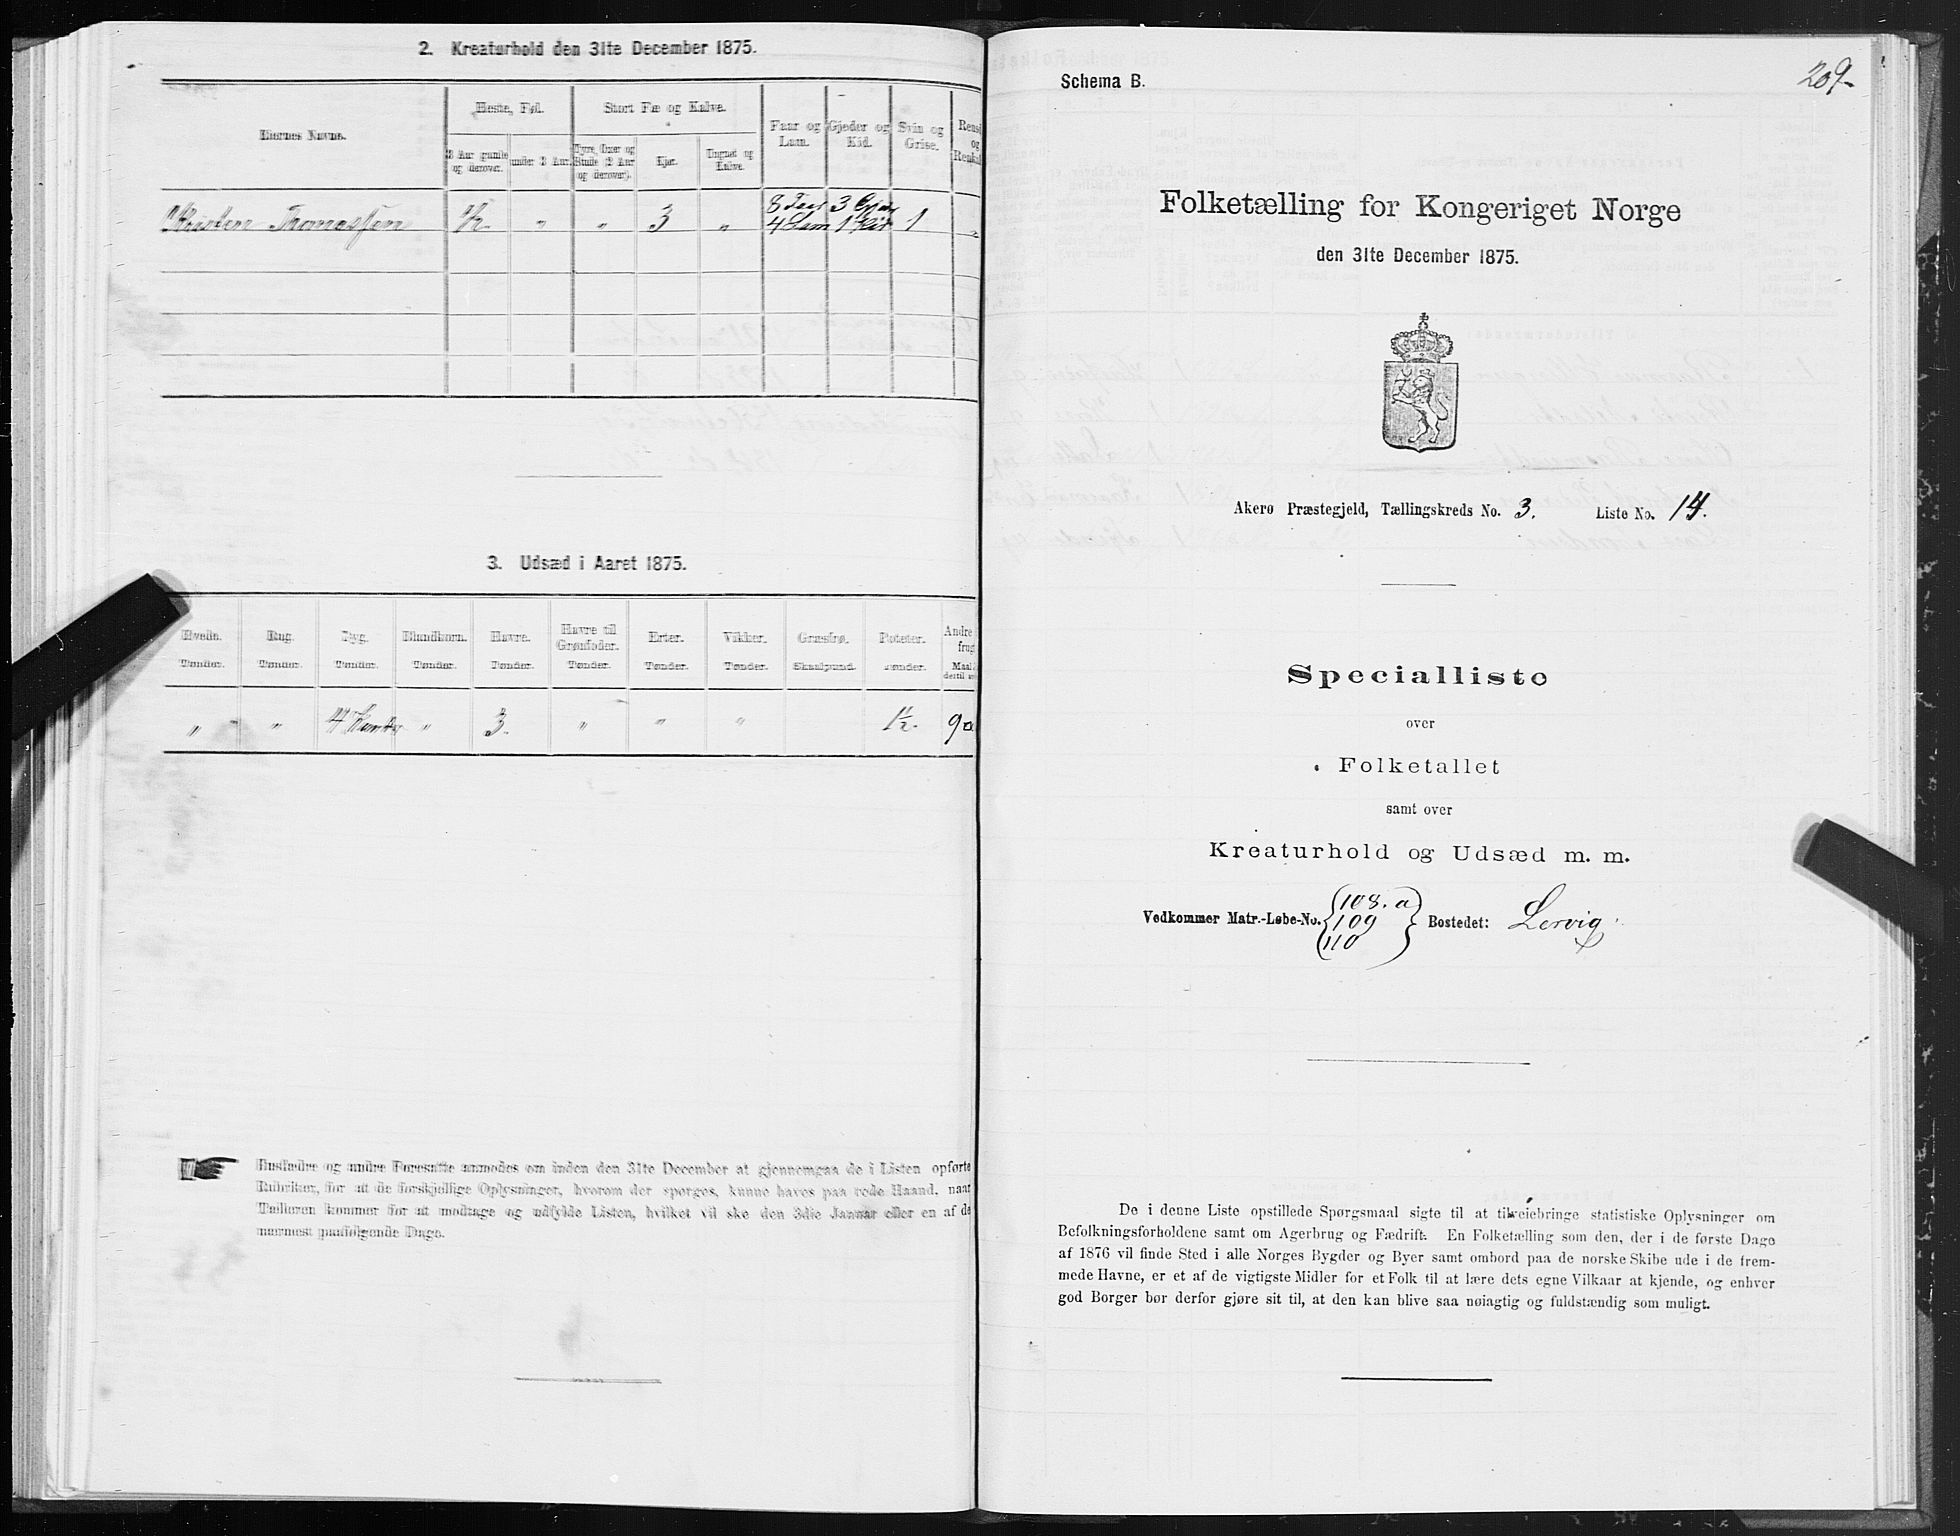 2. Kreaturhold den 31te December 1875.
Eiernes Navne.
Heste, Føl.
Stort Fæ og Kalve.
Faar og Lam.
Gjeder og Kid.
Svin og Grise.
Rens
og
Renkal
3 Aar gamle og derover.
under 3 Aar.
Tyre, Oxer og Stude (2 Aar og derover).
Kjør.
Ungnøt og Kalve.
Kristen Thomassen 1/2 " " 3 " 8 Feer 4 Lam 3 Gjed 1 Kid 1 "
3. Udsæd i Aaret 1875.
Hvede. Rug. Byg. Blandkorn. Havre. Havre til Grønfoder. Erter. Vikker. Græsfrø. Poteter. Andre
frug
Tønder. Tønder. Tønder. Tønder. Tønder. Tønder. Tønder. Tønder. Skaalpund. Tønder. Maal
destil
" " 4 " 3. " " " 1 1/2.
Husfædre og andre Foresatte anmodes om inden den 31te December at gjennemgaa de i Listen opførte
Rubriker, for at de forskjellige Oplysninger, hvorom der spørges, kunne haves paa rede Haand, naar
Tælleren kommer for at modtage og udfylde Listen, hvilket vil ske den 3die Januar eller en af de
nærmest paafølgende Dage.
209.
Schema B.
Folketælling for Kongeriget Norge
den 31te December 1875.
Akerø Præstegjeld, Tællingskreds No. 3. Liste No. 14.
Specialliste
over
Folketallet
samt over
Kreaturhold og Udsæd m. m.
Vedkommer Matr.-Løbe-No. {108. a 109 110} Bostedet: Lervig.
De i denne Liste opstillede Spørgsmaal sigte til at tilveiebringe statistiske Oplysninger om
Befolkningsforholdene samt om Agerbrug og Fædrift. En Folketælling som den, der i de første Dage
af 1876 vil finde Sted i alle Norges Bygder og Byer samt ombord paa de norske Skibe ude i de frem-
mede Havne, er et af de vigtigste Midler for et Folk til at lære dets egne Vilkaar at kjende, og enhver
god Borger bør derfor gjøre sit til, at den kan blive saa nøiagtig og fuldstændig som muligt.